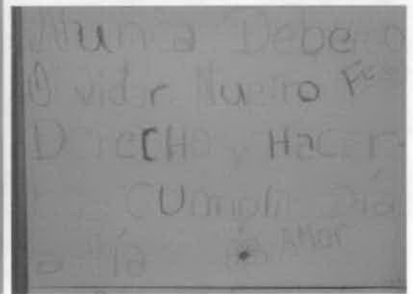 Nunca Debe o
Olvidar Nuestro
Derecho y Hacer
Cumplir Día
a Día Amor